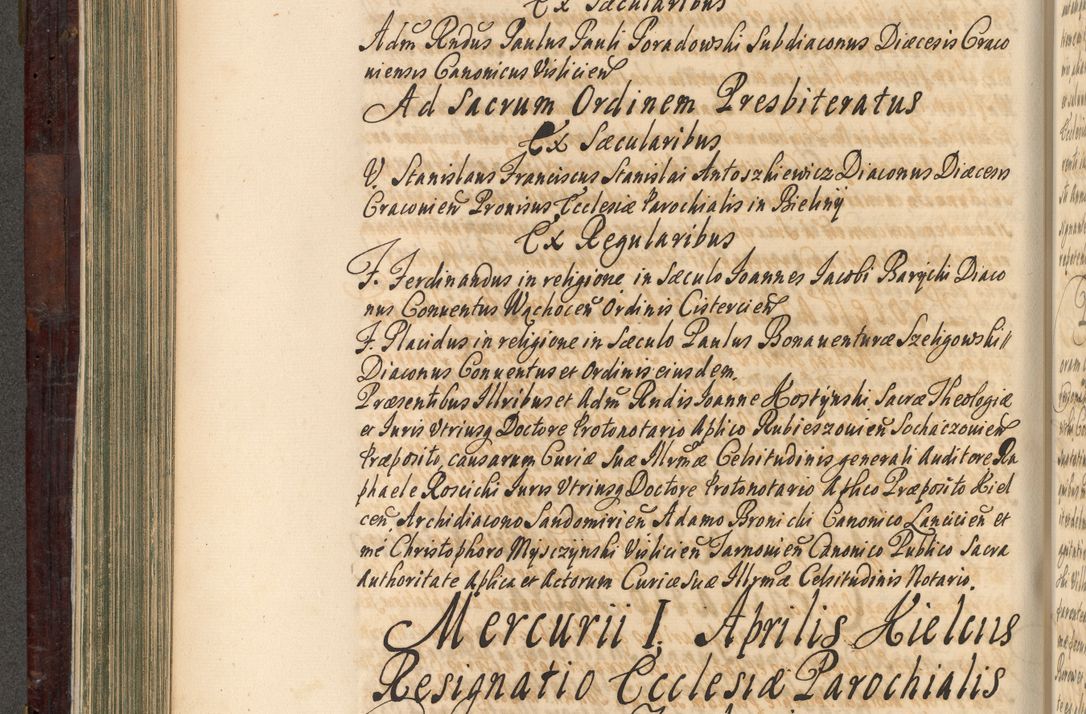 Ex Sæcularibus
Adm Rndus Paulus Pauli Poradowski Subdiaconus Diæcesis Craco
niensis Canonicus Vislicien̄
Ad Sacrum Ordinem Presbiteratus
Ex Sæcularibus
V. Stanislaus Franciscus Stanislai Antoszkiewicz Diaconus Diæcesis
Craconien̄ Prouisus Ecclesiæ Parochialis in Bieliny
Ex Regularibus
F. Ferdinandus in religione in Sæculo Joannes Jacobi Barÿcki Diaco
nus Conuentus Wąchocen̄ Ordinis Cistercien̄
F. Placidus in religione in Sæculo Paulus Bonauenturæ Szeligowski //
Diaconus Conuentus et Ordinis eiusdem.
Præsentibus Illribus et Adm Rndis Joanne Kostÿnski Sacræ Theologiæ
et Juris Vtriusq Doctore Protonotario Aplico Rubieszouien̄ Sochaczouien̄
Præposito, causarum Curiæ Suæ Illrmæ Celsitudinis generali Auditore Ra
phaele Roscicki Juris Vtriusq Doctore Protonotario Aplico Præposito Kiel
cen̄, Archidiacono Sandomirien̄ Adamo Bronicki Canonico Lancicien̄ et
me Christophoro Mÿsczÿnski Vislicien̄ Tarnouien̄ Canonico Publico Sacra
Authoritate Aplica et Actorum Curiæ Suæ Illrmæ Celsitudinis Notario.
Mercurii I. Aprilis Kielciis
Resignatio Ecclesiæ Parochialis